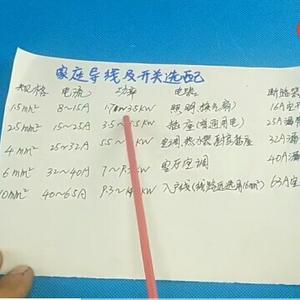 家庭导线及开关选配
规格 电流 功率 电器 断路器
1.5mm² 8~15A 1.7 3.5KW 照明(换气扇) 16A空
2.5mm² 15~25A 3.5~5.5KW 插座(普通用电) 25A漏
4mm² 25~32A 5.5 KW 空调,热水器,厨房插座 32A漏
6mm² 32~40A 7~9.3KW 客厅空调 40A漏
10mm² 40~65A 9.3~14KW 入户线(线路远选用16mm²) 63A空